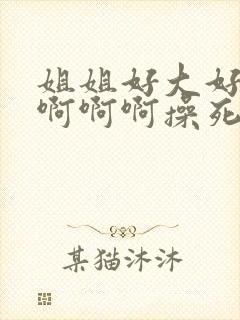 姐姐好大好
啊啊啊操死
某猫沐沐